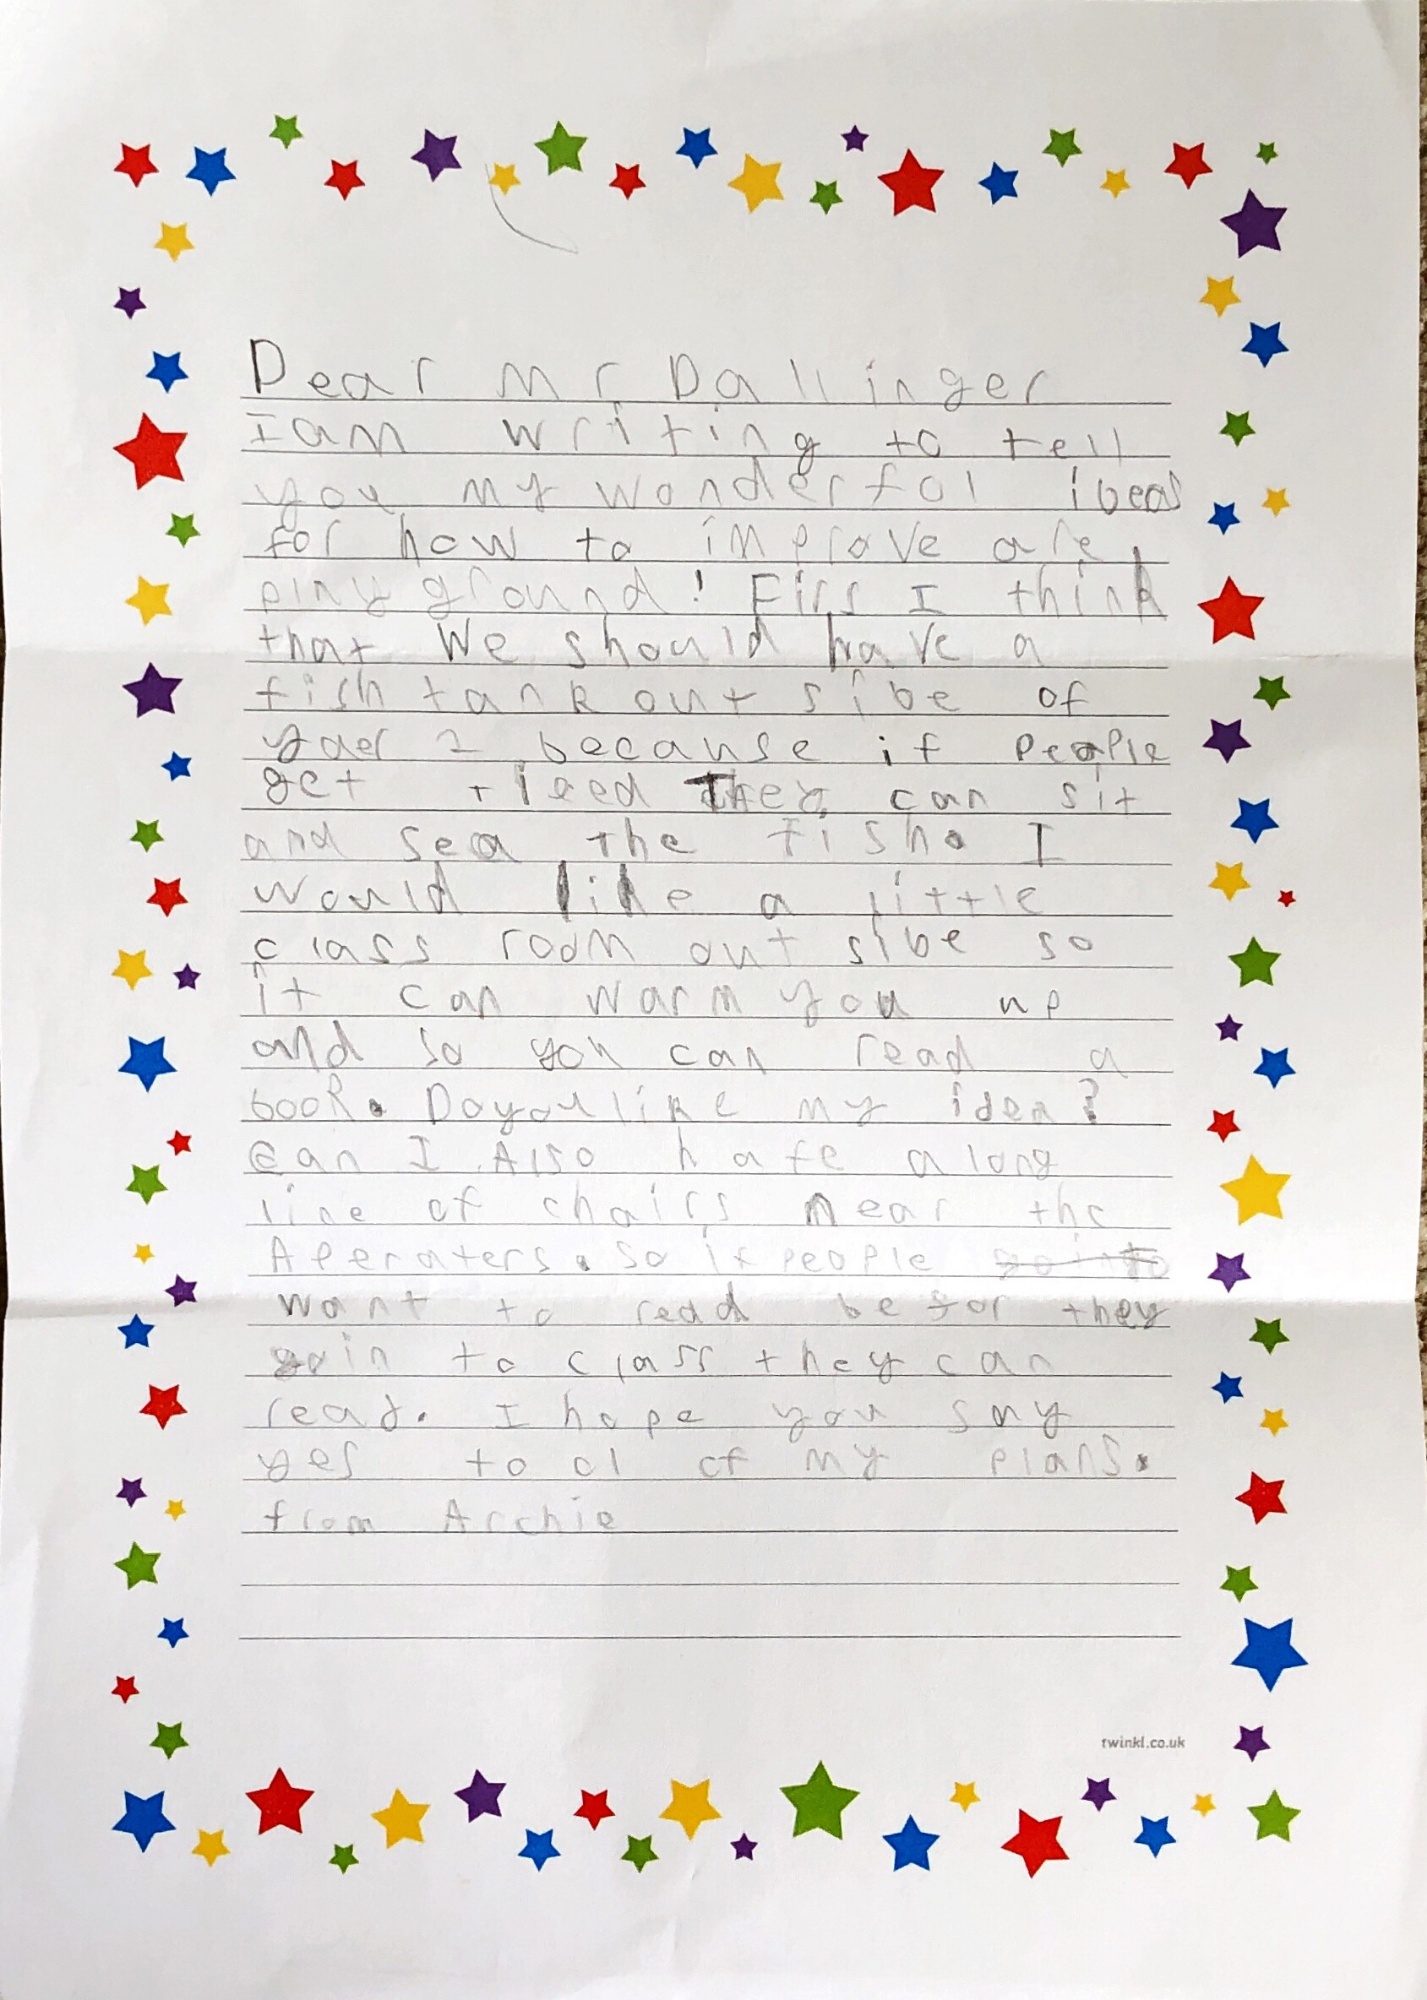 Dear Mr Dallinger
I am writing to tell
you my wonderfol ibeas
for how to improve are
playground! Firs I think
that We should have a
fish tank out sibe of
yaer 2 because if people
get tieed They can sit
and sea the fish. I
would like a little
class room out sibe so
it can warm you up
and so you can read a
book. Do you like my idea?
Can I Also hafe a long
line of chairs near the
Aperaters. So if people go in to
want to read befor they
go in to class they can
read. I hope you say
yes to ol of my plans.
from Archie
twinkl.co.uk